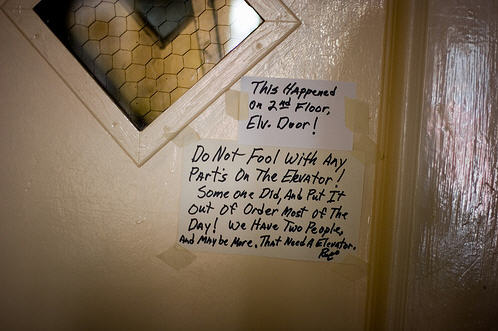 This Happened
on 2nd Floor,
Elv. Door!
Do Not Fool With Any
Part's On The Elevator!
Some one Did, And Put It
Out Of Order Most of The
Day! We Have Two People,
And Maybe More, That Need A Elevator.